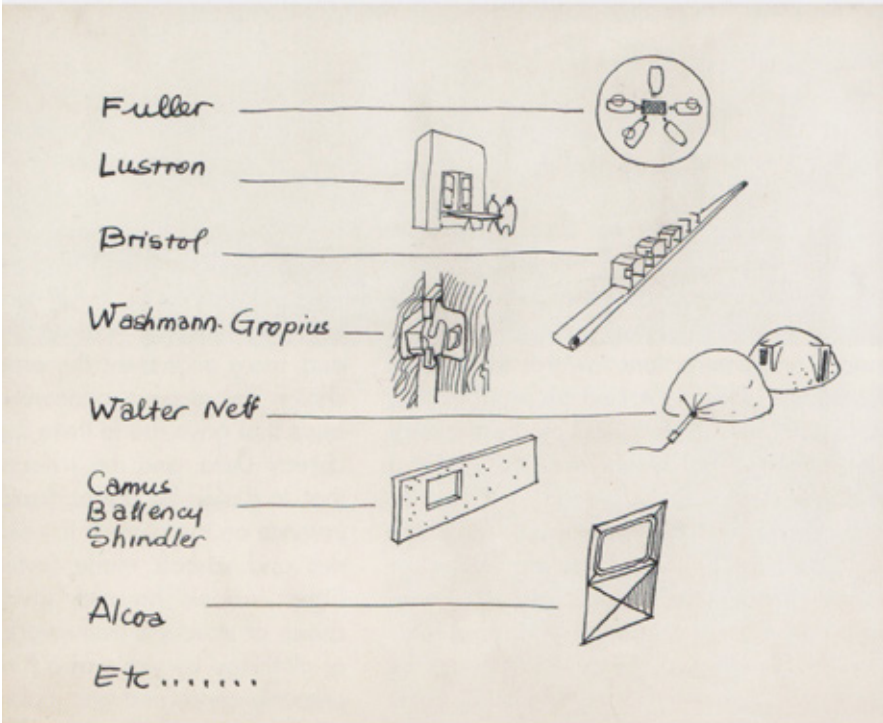 Fuller
Lustron
Bristol
Washmann-Gropius
Walter Neff
Camus
Ballency
Shindler
Alcoa
Etc.......